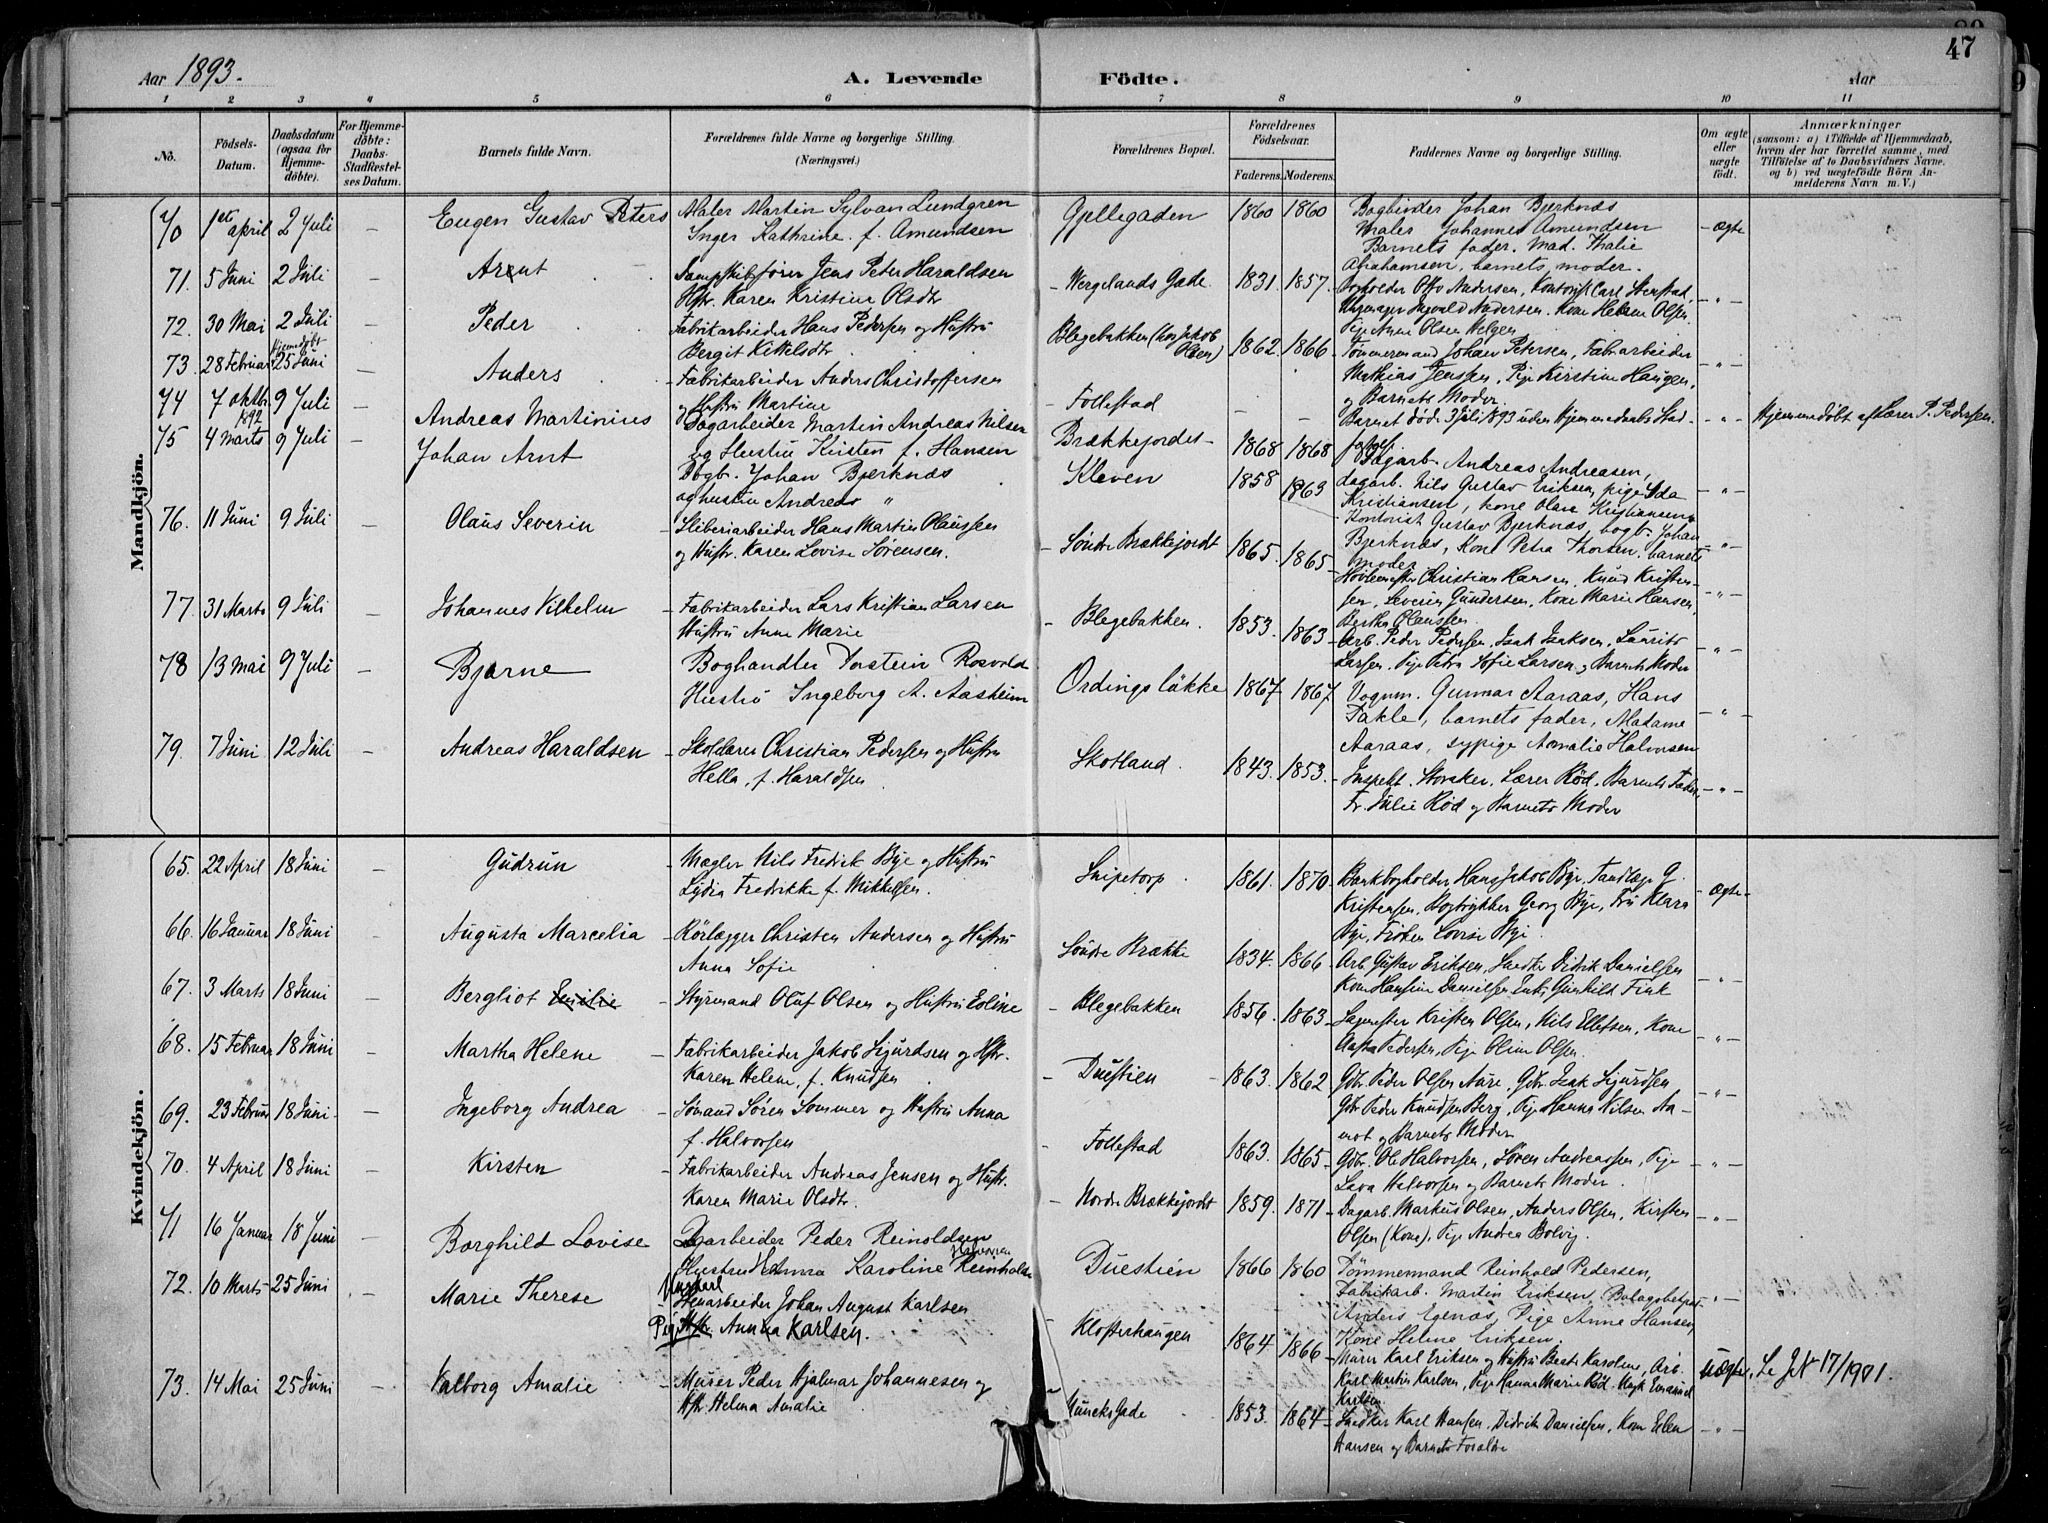 47
Aar 1893.
A. Levende Födte.
Aar
1 2 3 4 5 6 7 8 9 10 11
No.
Födsels-Datum.
Daabsdatum (ogsaa for Hjemmedöbte).
For Hjemmedöbte: Daabs-Stadfæstelses Datum.
Barnets fulde Navn.
Forældrenes fulde Navne og borgerlige Stilling. (Næringsvei.)
Forældrenes Bopæl.
Forældrenes Födselsaar.
Faderens. Moderens.
Faddernes Navne og borgerlige Stilling.
Om ægte eller uægte födt.
Anmærkninger
(saasom: a) i Tilfælde af Hjemmedaab, hvem der har forrettet samme, med Tilföielse af to Daabsvidners Navne, og b) ved uægtefödte Börn Anmelderens Navn m. V.)
Mandkjön.
70 1ste april 2 Juli – Eugen Gustav Peters Maler Martin Sylvan Lundgren
Inger Kathrine f. Amundsen
Gjellegaden 1860 1860 Bogbinder Johan Bjerknæs
Maler Johannes Amundsen
Barnets fader. Mad. Thalie
Abrahamsen, barnets moder.
– ægte
71. 5 Juni 2 Juli – Arent – Dampskibsfører Jens Peter Haraldsen
Hstr. Karen Kristine Olsdtr
– Wergelands Gade 1831. 1857. Otto Andersen, Kontorist Carl Stenstad,
Ingvald Andersen. Kone Helene Olsen,
Pige Anne Olsen Helgen
– " –
72. 30 Mai 2 Juli – Peder – Fabrikarbeider Hans Pedersen og Hustru
Bergit Kittelsdtr
Blegebakken (hos Jakob Olsen) 1862. 1866 – Tømmermand Johan Petersen, Fabrarbeider
Mathias Jenssen, Pige Kirstine Haugen,
og Barnets Moder.
– " –
73. 28 Februar Hjemmedøbt 25 Juni Anders – Fabrikarbeider Anders Christoffersen
og Hustru Martine
– Follestad – – Barnet døde 3 Juli 1893 uden Hjemmedaabs Stad-
fæst.
– " – Hjemmedøbt af Lærer P. Pedersen.
74 7 oktbr 1892 9 Juli Andreas Martinius Dagarbeider Martin Andreas Nilsen
og Hustru Kirsten f. Hansen
Brækkejordet – 1868 1868 Dagarb. Andreas Andreasen,
dagarb. Nils Gustav Eriksen, pige Ida
Kristiansen, kone Olave Kristiansen
– " –
75 4 Marts 9 Juli Johan Arnt Bogb. Johan Bjerknæs
og hustru Andrea "
Kleven 1858 1863 Kontorist Gustav Bjerknæs, bogb. Johan
Bjerknæs, Kone Petra Thorsen, barnets
moder
– " –
76. 11 Juni 9 Juli – Olaus Severin – Sliberiarbeider Hans Martin Olaussen
og Hustr. Karen Lovise Sørensen.
– Søndre Brækkejordet 1865. 1865 – Høvlemester Christian Hansen, Knud Kristen-
sen, Severin Gundersen, Kone Marie Hansen,
Bertha Olaussen.
– " –
77. 31 Marts 9 Juli – Johannes Vilhelm – Fabrikarbeider Lars Kristian Larsen
Hustru Anne Marie
– Blegebakken. 1853. 1863 – Arb. Peder Pedersen, Isak Isaksen, Laurits
Larsen. Pige Petra Sofie Larsen og Barnets Moder
– " –
78 13 Mai 9 Juli – Bjarne Boghandler Torstein Rosvold
Hustru Ingeborg A. Aasheim
Ordings løkke 1867. 1867. Vognm. Gunnar Aaraas, Hans
Takle, barnets fader, Madame
Aaraas, sypige Amalie Halvorsen
– " –
79. 7 Juni 12 Juli – Andreas Haraldsen – Skolelærer Christian Pedersen og Hustru
Hella, f. Haraldsen.
Skotland. 1843. 1853. – Inspekt. Storaker. Lærer Rød. Barnets Fader,
Fr. Julie Rød og Barnets Moder
– " –
Kvindekjön.
65. 22 April 18 Juni – Gudrun – Mægler Nils Fredrik Bye og Hustru
Lydia Fredrikke f. Mikkelsen.
Snipetorp 1861. 1870. – Bankbogholder Hans Jakob Bye, Tandlæge G.
Kristensen, Bogtrykker Georg Bye, Fru Klara
Bye, Frøken Lovise Bye.
– ægte –
66. 16 Januar 18 Juni – Augusta Marcelia – Rörlægger Christen Andersen og Hustru
Anna Sofie
Søndre Brække 1834. 1866 – Arb. Gustav Eriksen, Snedker Didrik Danielsen
Kone Hansine Danielsen Enke Gunhild Fink
– " –
67. 3 Marts 18 Juni – Bergliot Emilie – Styrmand Oluf Olsen og Hustru Eoline
– Blegebakken 1856. 1863. – Kristen Olsen, Nils Ellefsen, Kone
Pedersen, Pige Oline Olsen.
– " –
68. 15 Februar 18 Juni – Martha Helene – Fabrikarbeider Jakob Sigurdsen og Hstr.
Karen Helene, f. Knudsen
– Duestien – 1863. 1862 – Gbr. Peder Olsen Aare, Gbr. Isak Sigurdsen
Gbr. Peder Knudsen Berg, Pige Hanna Nilsen Aa-
mot og Barnets Moder
– " –
69. 23 Februar 18 Juni – Ingeborg Andrea – Sømand Søren Sommer og Hustru Anna
f. Halvorsen
– Follestad 1863. 1865 – Gbr. Ole Halvorsen, Søren Andreassen, Pige
Halvorsen og Barnets Moder.
– " –
70. 4 April 18 Juni – Kirsten – Fabrikarbeider Andreas Jensen og Hustr.
Karen Marie Olsdtr.
– Nordre Brækkejordet 1859. 1871 – Dagarb. Markus Olsen, Anders Olsen, Kirsten
Olsen (Kone), Pige Andrea Bolvig.
– " –
71 16 Januar 18 Juni Borghild Lovise Dagarbeider Peder Reinoldsen
Hustru Karoline
Duestien 1866 1860 Tømmermand Reinhold Pedersen,
Fabrikarb. Martin Eriksen,
Anders Egenæs, Pige Anne Hansen,
Kone Helene Eriksen.
– " –
72. 10 Marts 25 Juni – Marie Therese – Ungkarl
Stenarbeider Johan August Karlsen
Pige Hstr. Anna Karlsen.
– Klosterhaugen 1864 1866 – Murer Karl Eriksen og Hustru Beate Karoline, Arb.
Karl Martin Karlsen, Pige Hanna Marie Rød. Ungk. Emanuel
Karlsen
uægte. Se J.N. 17/1901.
73. 14 Mai 25 Juni – Valborg Amalie – Murer Peder Hjalmar Johannesen og
Hstr. Helma Amalie
– Muncks Gade 1853. 1864 – Snedker Karl Hansen, Didrik Danielsen, Kone Elen
Hansen og Barnets Forældre
– " –